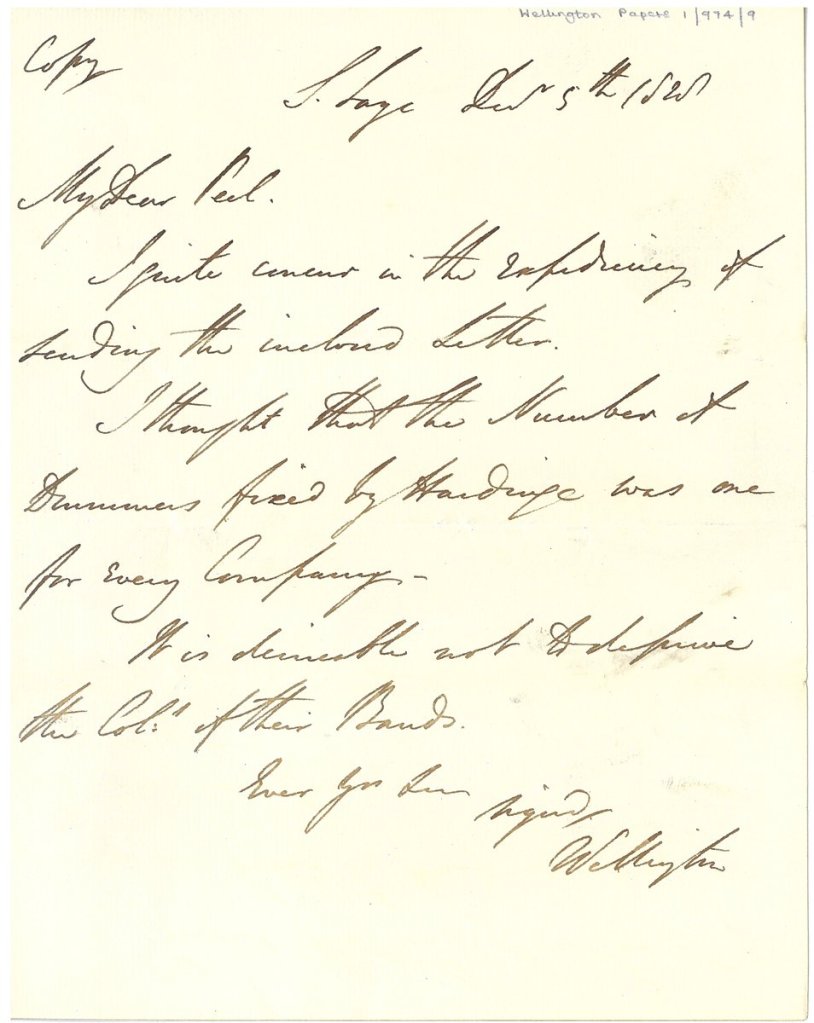 Wellington Papers 1/974/9
Copy
S. Saye Decr 5th 1828
My Dear Peel.
I quite concur in the Expediency of
sending the inclosed Letter.
I thought that the Number of
Drummers fixed by Hardinge was one
for Every Company –
It is desireable not to deprive
the Cols of their Bands.
Ever Yrs
signed
Wellington